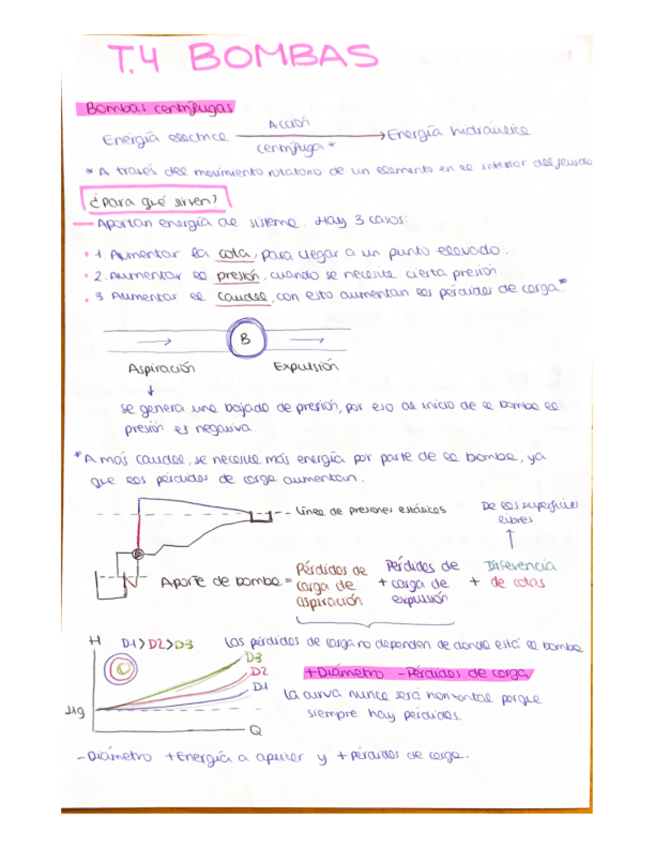 T.4 BOMBAS
Bombas centrífugas
Energía eléctrica Acción centrífuga* Energía hidráulica
* A través del movimiento rotatorio de un elemento en el interior del fluido
¿Para qué sirven?
Aportan energía al sistema. Hay 3 casos:
1. Aumentar la cota, para llegar a un punto elevado.
2. Aumentar la presión, cuando se necesita cierta presión.
3 Aumentar el caudal, con esto aumentan las pérdidas de carga.*
B
Aspiración Expulsión
se genera una bajada de presión, por eso al inicio de la bomba la
presión es negativa.
*A más caudal, se necesita más energía por parte de la bomba, ya
que las pérdidas de carga aumentan.
Línea de presiones estáticas
De las superficies
libres
B
Aporte de bomba = Pérdidas de carga de aspiración + Pérdidas de carga de expulsión + Diferencia de cotas
H D1>D2>D3 Las pérdidas de carga no dependen de donde está la bomba
D3
D2
D1
+Diámetro -Pérdidas de carga
La curva nunca será horizontal porque
siempre hay pérdidas.
Hg
Q
-Diámetro +Energía a aportar y +pérdidas de carga.